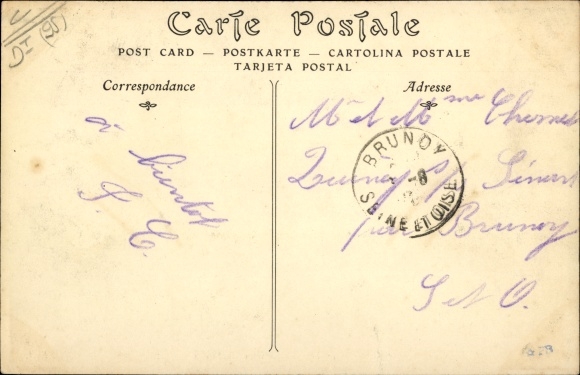 Carte Postale
POST CARD — POSTKARTE — CARTOLINA POSTALE
TARJETA POSTAL
Correspondance
à bientôt
Adresse
Mr et Mme
Sénart
par Brunoy
S et O.
BRUNOY
SEINE ET OISE